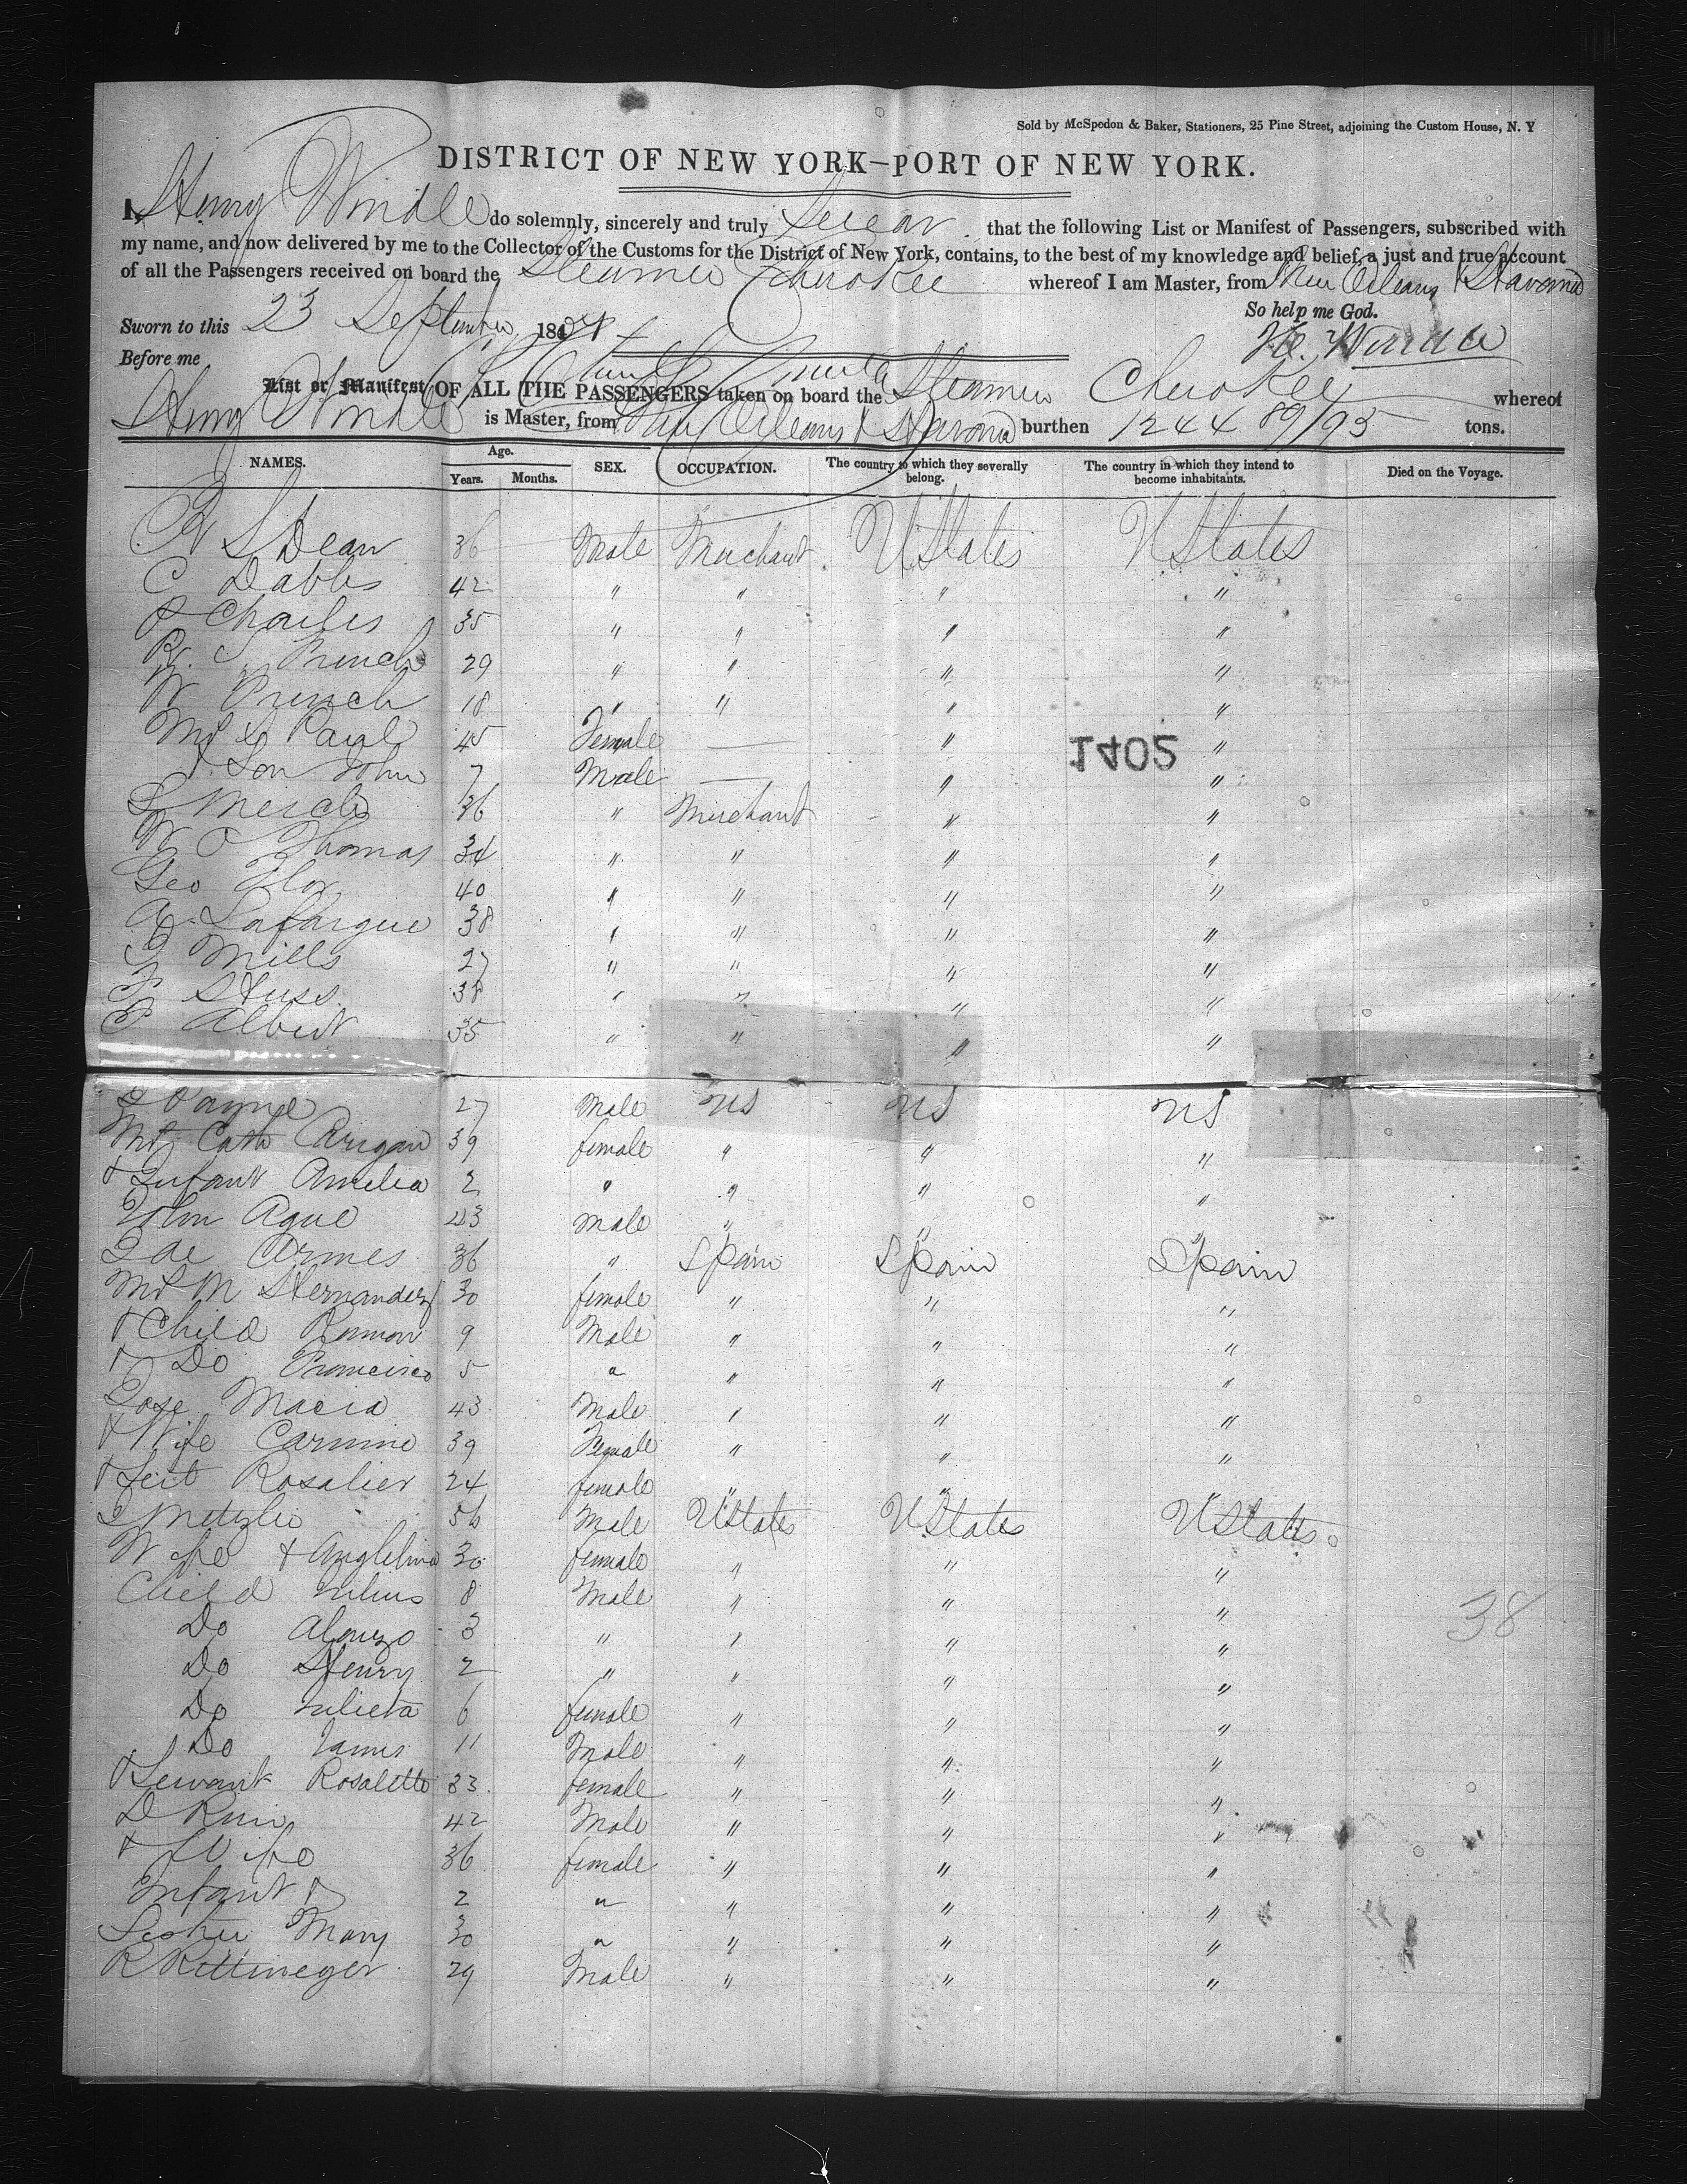 Sold by McSpedon & Baker, Stationers, 25 Pine Street, adjoining the Custom House, N. Y
DISTRICT OF NEW YORK—PORT OF NEW YORK.
I, Henry Windle do solemnly, sincerely and truly Swear that the following List or Manifest of Passengers, subscribed with
my name, and now delivered by me to the Collector of the Customs for the District of New York, contains, to the best of my knowledge and belief, a just and true account
of all the Passengers received on board the Steamer Cherokee whereof I am Master, from New Orleans & Havana
So help me God.
Sworn to this 23 September 185
H. Windle
Before me
List or Manifest OF ALL THE PASSENGERS taken on board the Steamer Cherokee whereof
Henry Windle is Master, from New Orleans & Havana burthen 1244 89/95 tons.
NAMES. Age. Years. Months. SEX. OCCUPATION. The country to which they severally belong. The country in which they intend to become inhabitants. Died on the Voyage.
S Dean 36 Male Merchant UStates UStates
C Dabbs 42 " " " "
Charles 35 " " " "
S French 29 " " " "
W French 18 " " " "
Mrs Paul 45 Female — " "
& Son John 7 Male — " "
1402
36 " Merchant " "
W Thomas 34 " " " "
Geo 40 " " " "
A Lafargue 38 " " " "
Mills 27 " " " "
38 " " " "
P Albert 35 " " " "
27 Male US US US
Mrs Cath 39 female " " "
& Infant Amelia 2 " " " "
John Ague 43 Male " " "
de Armes 36 " Spain Spain Spain
Mrs M Hernandez 30 female " " "
& Child Ramon 9 Male " " "
& Do Francisco 5 " " " "
Jose Macia 43 Male " " "
& Wife Carmine 39 Female " " "
& Rosalier 24 female " " "
56 Male UStates UStates UStates
Wife & Anglelina 30 female " " "
Child Julius 8 Male " " "
38
Do Alonzo 3 " " " "
Do Henry 2 " " " "
Do Julieta 6 female " " "
Do James 11 Male " " "
& Servant Rosalette 33 female " " "
D 42 Male " " "
& Wife 36 female " " "
Infant & 2 " " " "
Sister Mary 30 " " " "
R Rittineger 29 Male " " "